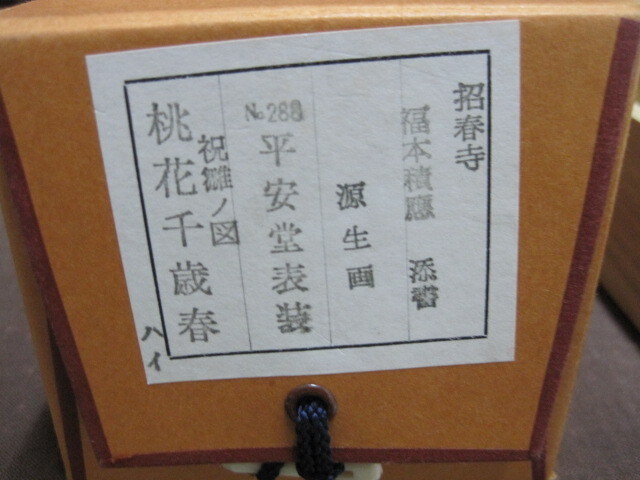 招春寺
福本積應 添書
源生画
No.288 平安堂表装
祝雛ノ図
桃花千歳春
ハイ